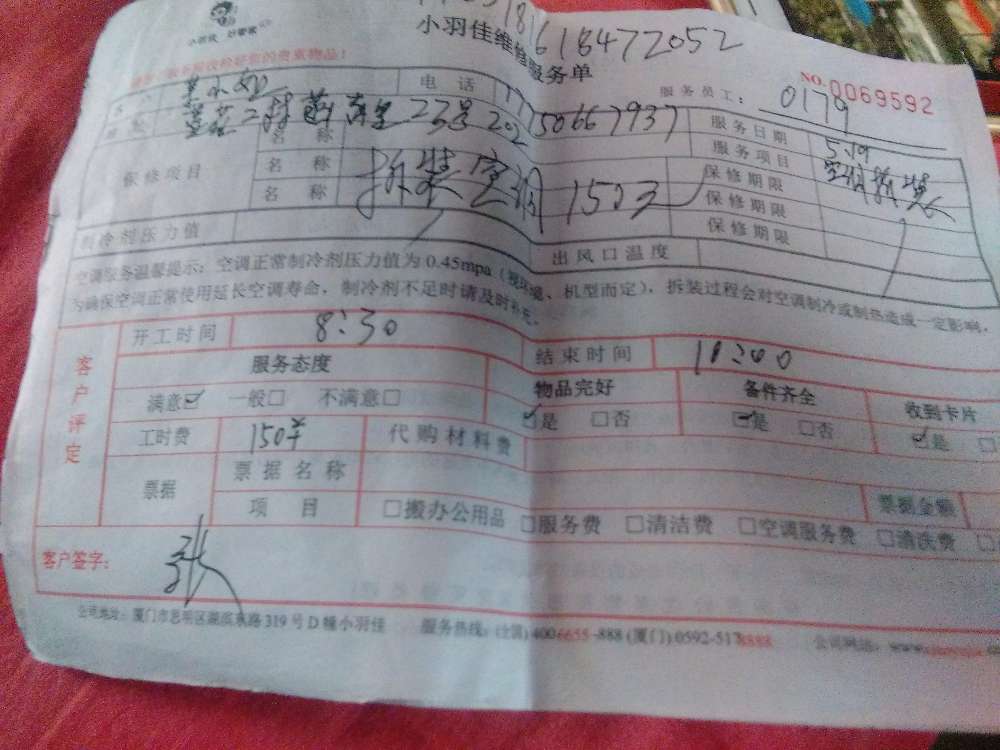 小羽佳 好管家
18161 8472052
小羽佳维修服务单
NO.0069592
服务员工： 0179
电话
名称
服务日期 5.19
服务项目 空调拆装
保修项目
名称 拆装空调 150元
保修期限
名称
保修期限
保修期限
制冷剂压力值
出风口温度
空调服务温馨提示：空调正常制冷剂压力值为0.45mpa（视环境、机型而定），拆装过程会对空调制冷或制热造成一定影响，
为确保空调正常使用延长空调寿命，制冷剂不足时请及时补充。
客户评定
开工时间 8:30
结束时间
服务态度
物品完好
备件齐全
收到卡片
满意☑ 一般□ 不满意□
☑是 □否
☑是 □否
☑是 □
工时费 150¥ 代购材料费
票据
票据名称
票据金额
项目 □搬办公用品 □服务费 □清洁费 □空调服务费 □清洗费 □
客户签字： 张
公司地址：厦门市思明区湖滨东路319号D幢小羽佳 服务热线：(全国)4006655-888 (厦门)0592-5178888 公司网址：www.